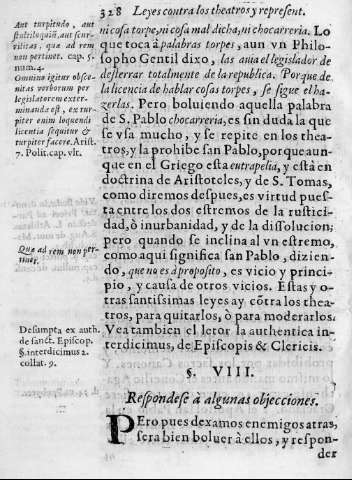 328 Leyes contra los theatros y represent.
ni cosa torpe, ni cosa mal dicha, ni chocarreria. Lo
que toca à palabras torpes, aun vn Philo-
sopho Gentil dixo, las auia el legislador de
desterrar totalmente de la republica. Porque de
la licencia de hablar cosas torpes, se sigue el ha-
zerlas. Pero boluiendo aquella palabra
de S. Pablo chocarreria, es sin duda la que
se vsa mucho, y se repite en los thea-
tros; y la prohibe san Pablo, porque aun-
que en el Griego esta eutrapelia, y està en
doctrina de Aristoteles, y de S. Tomas,
como diremos despues, es virtud pues-
ta entre los dos estremos de la rustici-
dad, ò inurbanidad, y de la dissolucion;
pero quando se inclina al vn estremo,
como aqui significa san Pablo, dizien-
do, que no es à proposito, es vicio y princi-
pio, y causa de otros vicios. Estas y o-
tras santissimas leyes ay cõtra los thea-
tros, para quitarlos, ò para moderarlos.
Vea tambien el letor la authentica in-
terdicimus, de Episcopis & Clericis.
§. VIII.
Respondese à algunas objecciones.
PEro pues dexamos enemigos atras,
sera bien boluer à ellos, y respon-
der
Aut turpitudo, aut
stultiloquiũ, aut scur-
rilitas, qua ad rem
non pertinet. cap. 5.
num. 4.
Omnino igitur obscæ-
nitas verborum per
legislatorem exter-
minauda est, ex tur-
piter enim loquendi
licentia sequitur &
turpiter facere. Arist.
7. Polit. cap. vlt.
Quæ ad rem non per-
tinet.
Desumpta ex auth.
de sanct. Episcop.
§. interdicimus 2.
collat. 9.